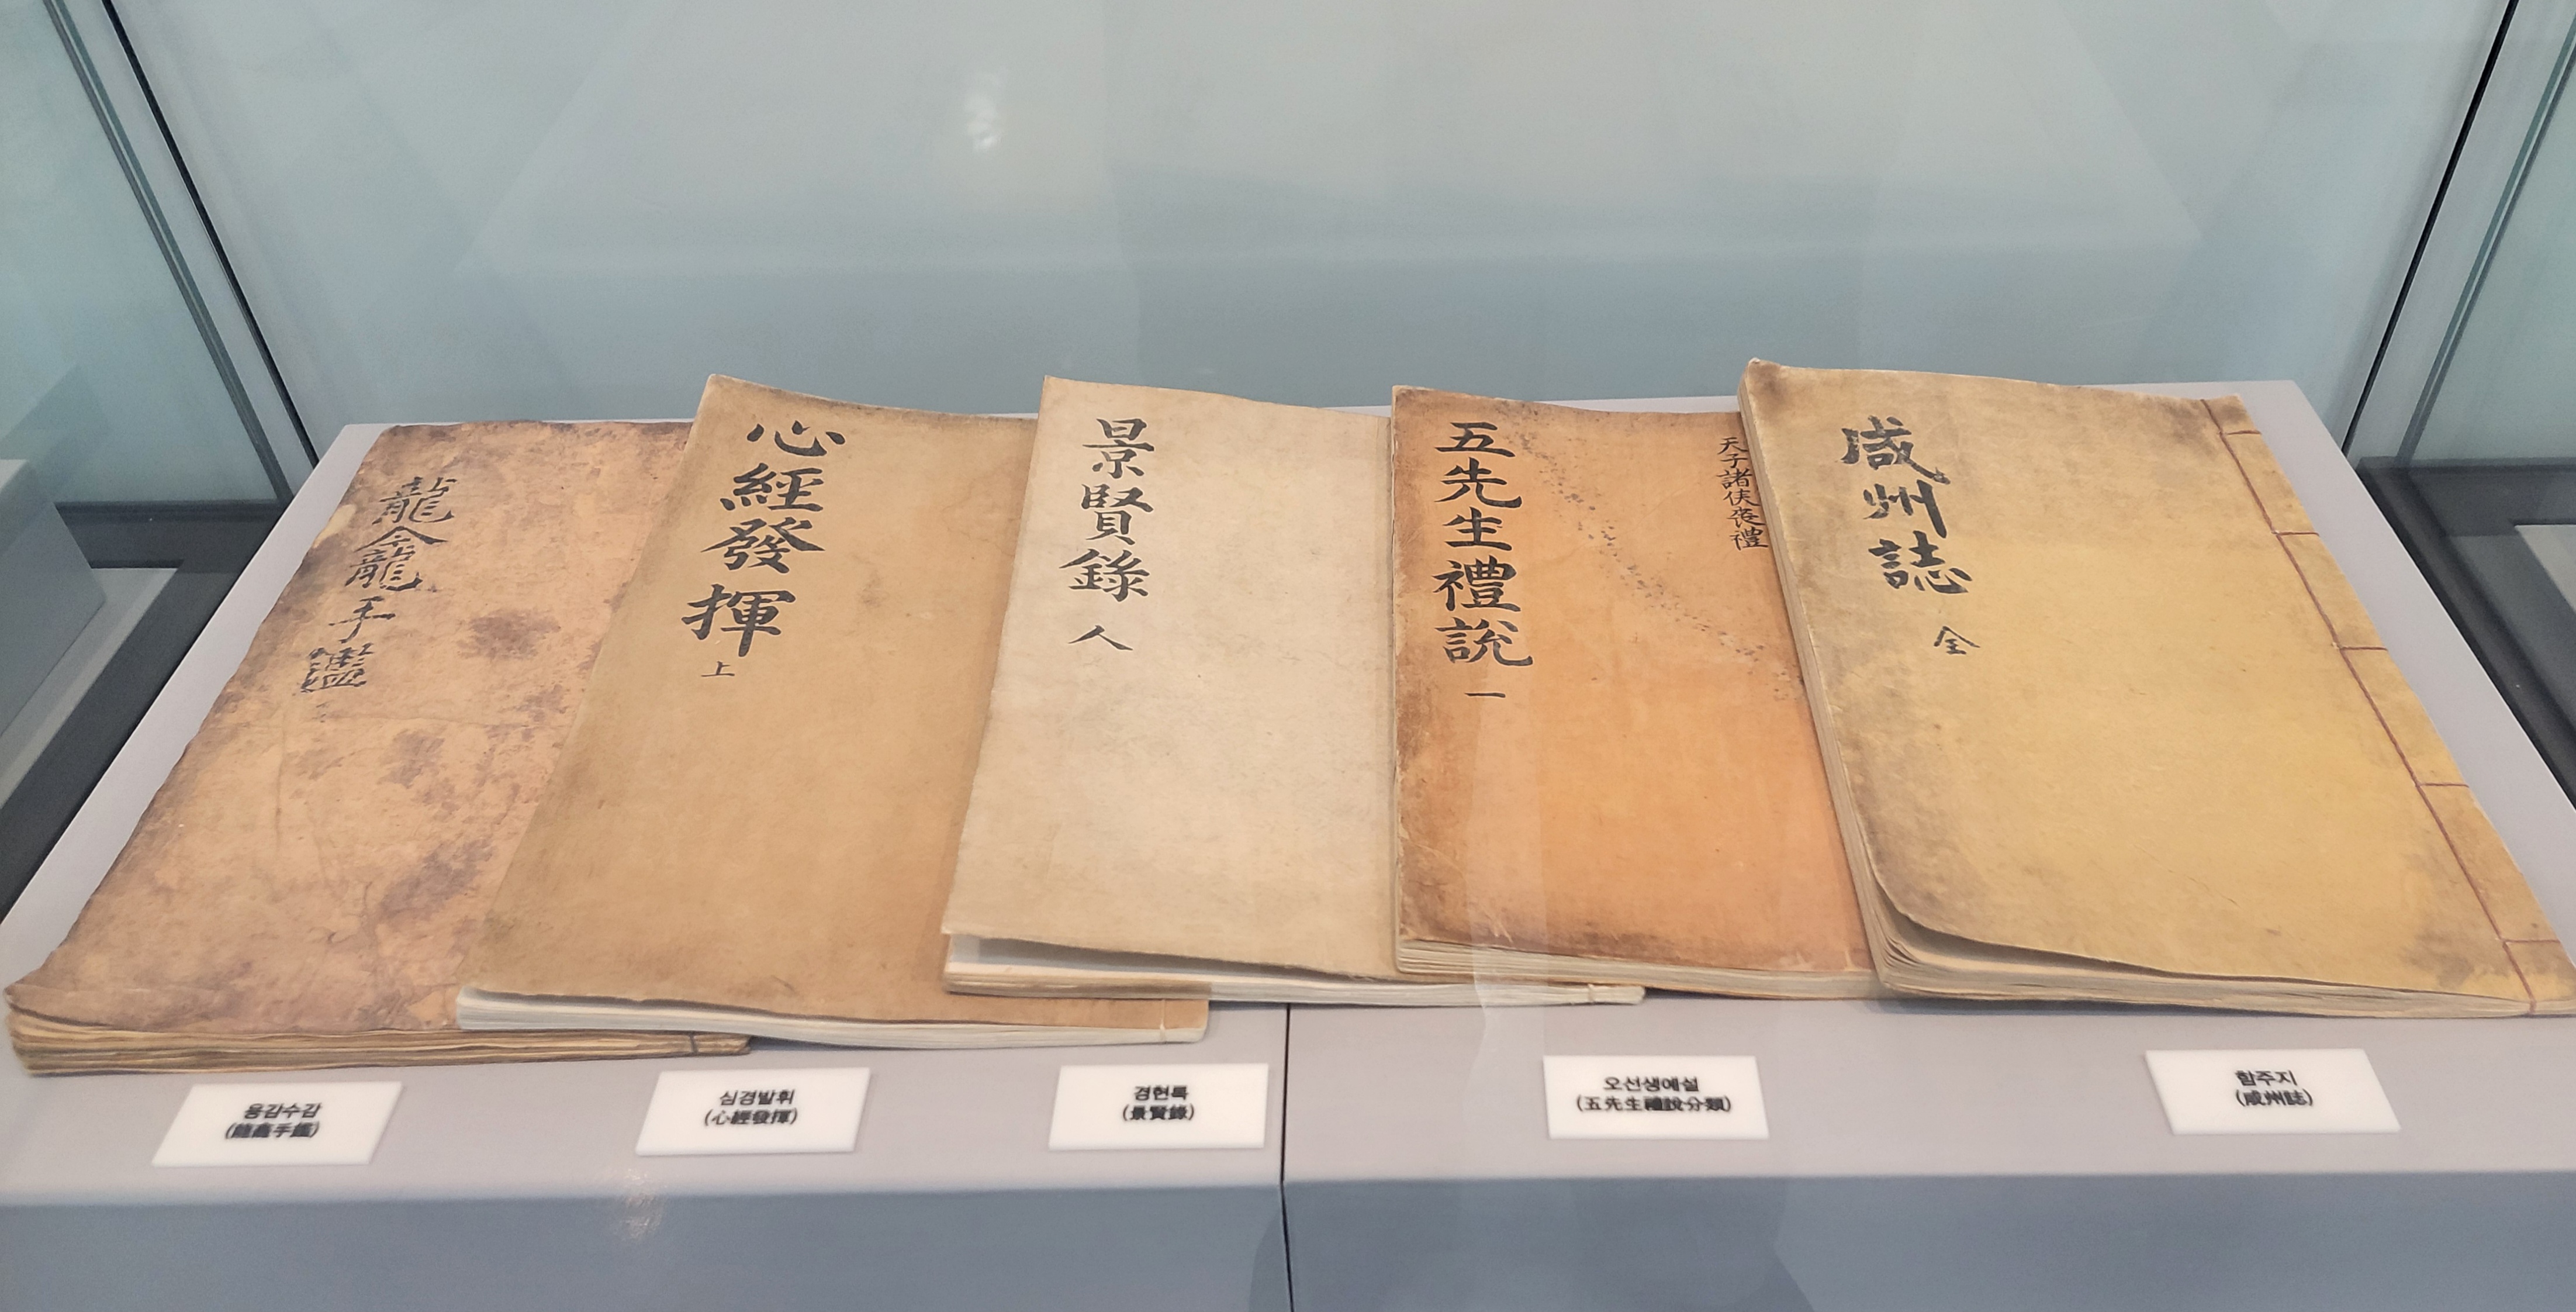 龍龕手鑑
心經發揮
上
景賢錄
人
五先生禮說
一
天子諸侯喪禮
咸州誌
全
용감수감
(龍龕手鑑)
심경발휘
(心經發揮)
경현록
(景賢錄)
오선생예설
(五先生禮說分類)
함주지
(咸州誌)